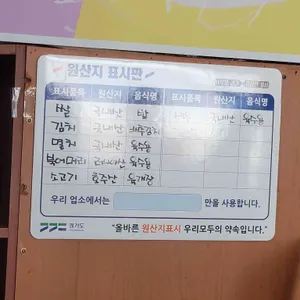 원산지 표시판
표시품목 원산지 음식명 표시품목 원산지 음식명
쌀 국내산 밥 국내산 육수용
김치 국내산 배추김치
멸치 국내산 육수용
북어머리 러시아산 육수용
소고기 호주산 육개장
우리 업소에서는 만을 사용합니다.
경기도 "올바른 원산지표시 우리모두의 약속입니다."